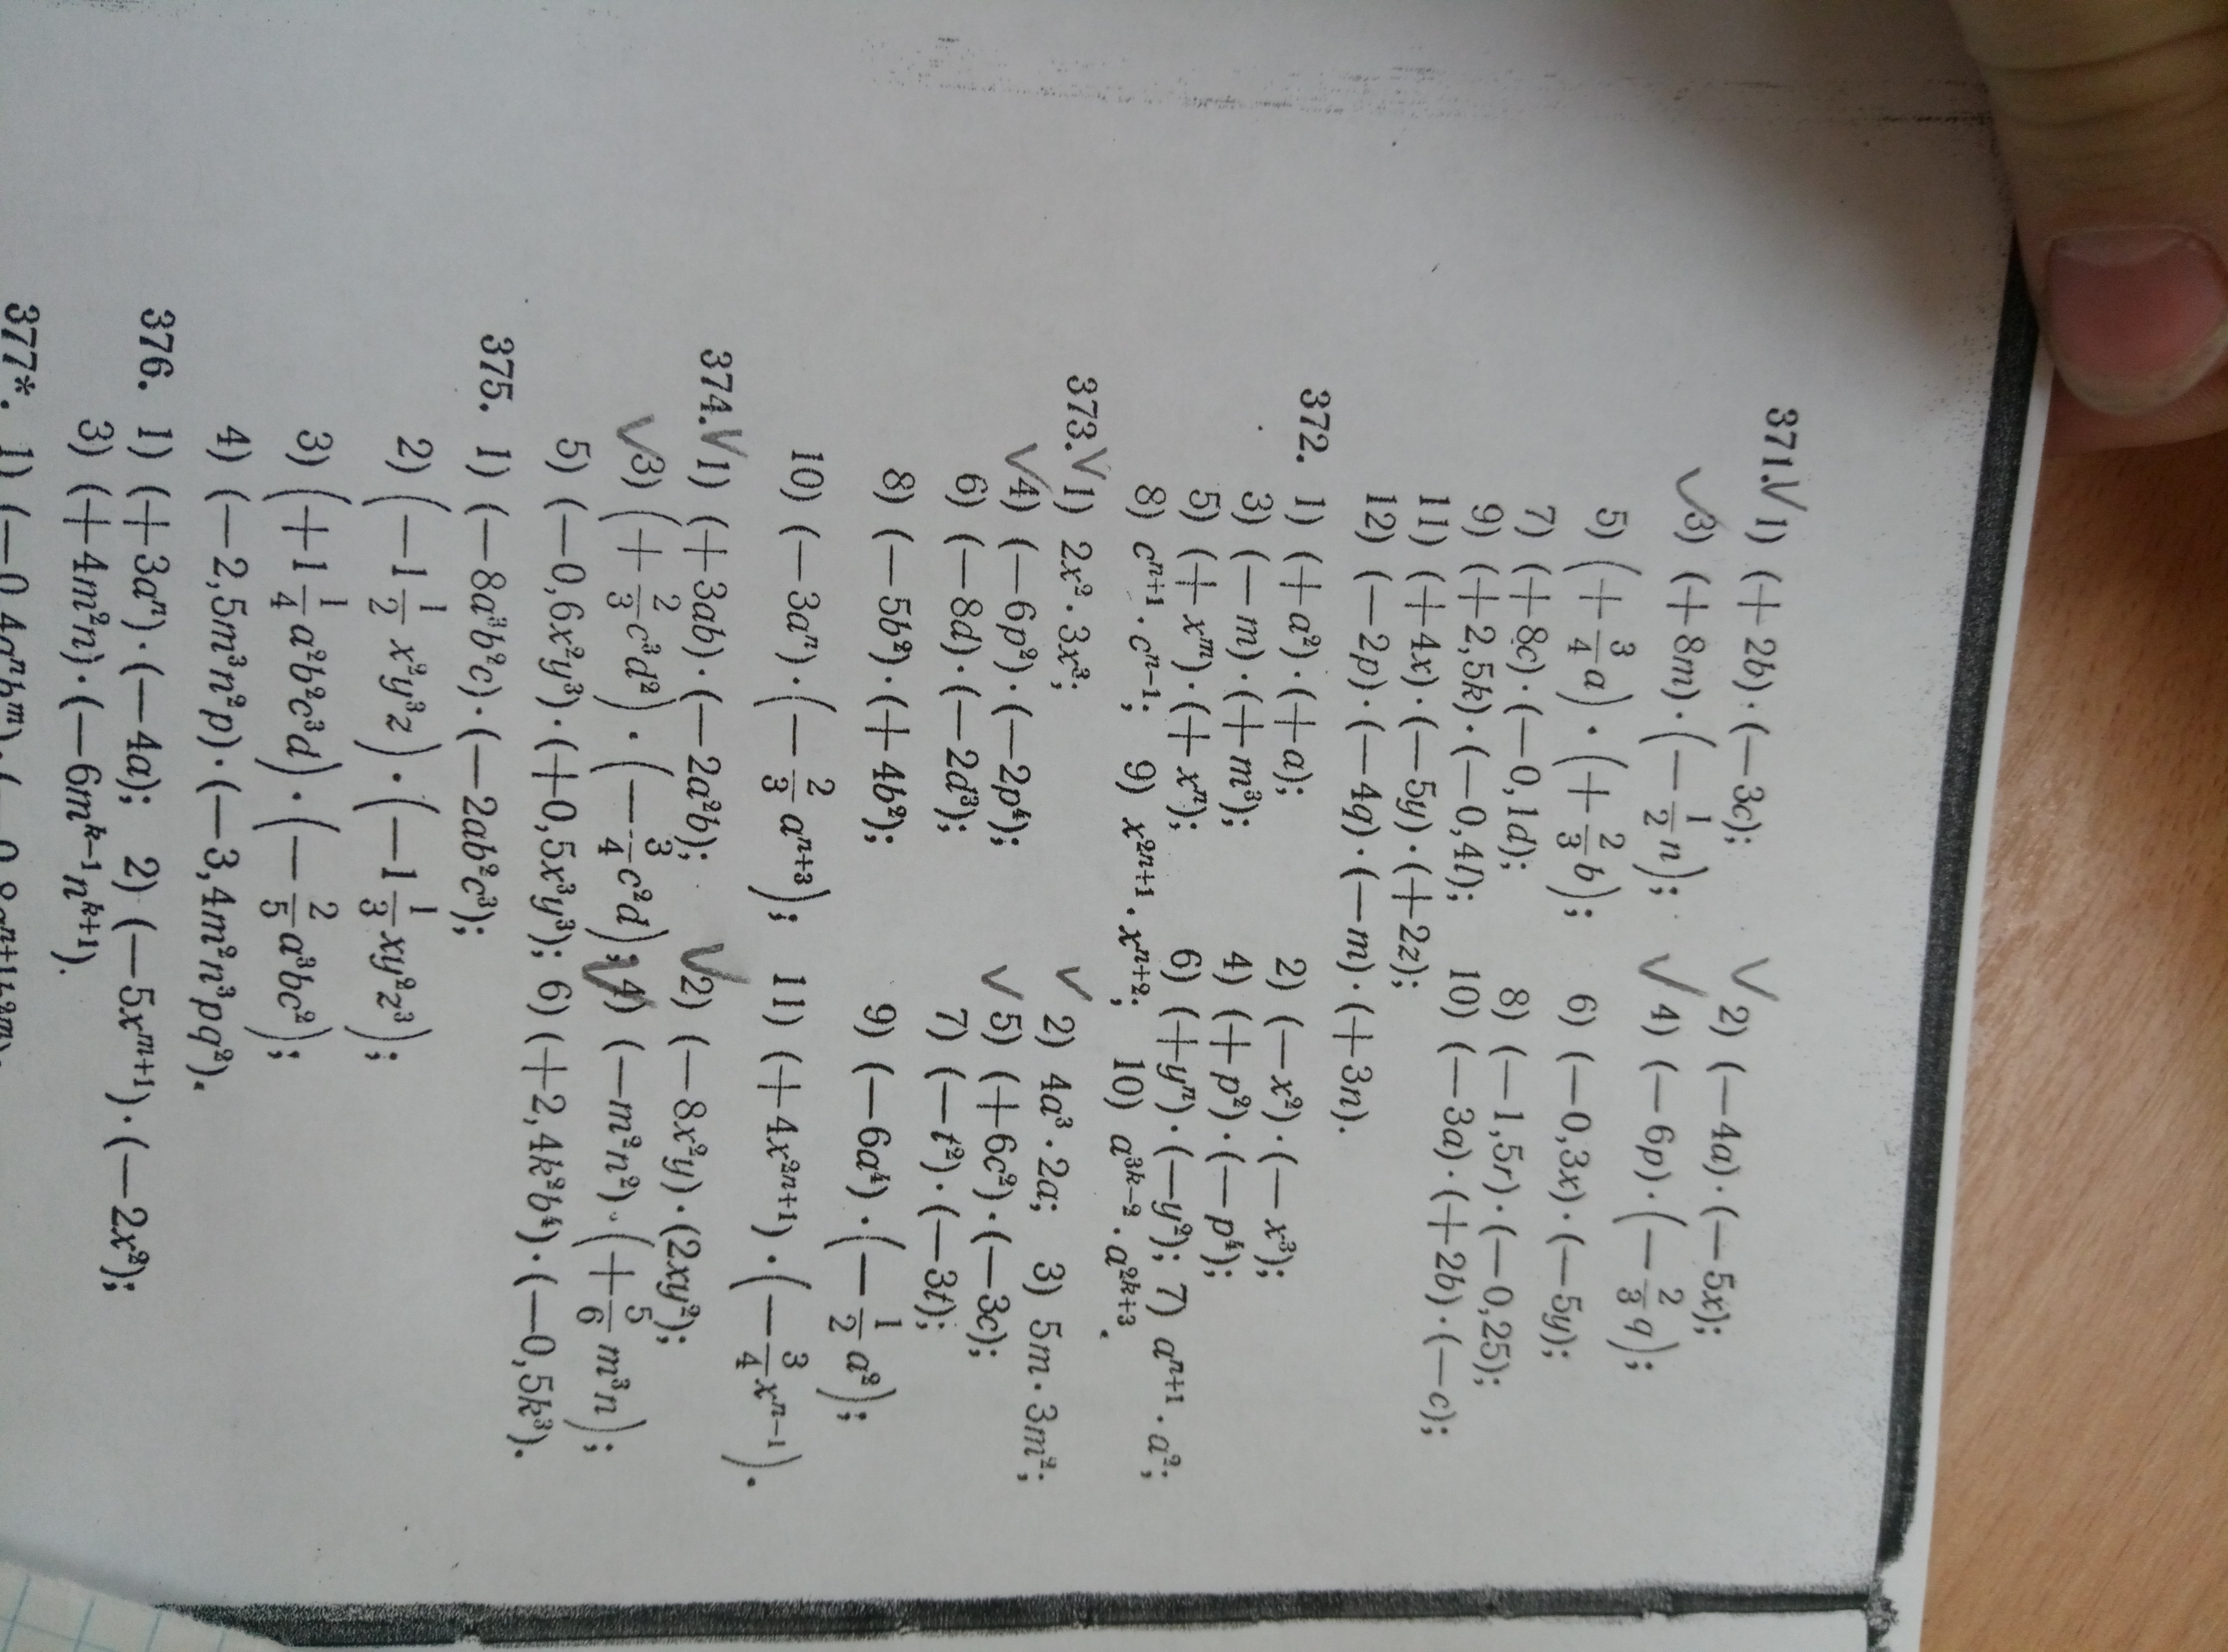 371. √ 1) (+ 2b)·(—3c); √ 2) (—4a)·(—5x);
√ 3) (+ 8m)·(—1/2 n); √ 4) (—6p)·(—2/3 q);
5) (+ 3/4 a)·(+ 2/3 b); 6) (—0,3x)·(—5y);
7) (+ 8c)·(—0,1d); 8) (—1,5r)·(—0,25);
9) (+ 2,5k)·(—0,4l); 10) (—3a)·(+2b)·(—c);
11) (+ 4x)·(—5y)·(+2z);
12) (—2p)·(—4q)·(—m)·(+3n).
372. 1) (+ a²)·(+ a); 2) (—x²)·(—x³);
3) (—m)·(+ m³); 4) (+ p²)·(—p⁴);
5) (+ xᵐ)·(+ xⁿ); 6) (+yⁿ)·(—y²); 7) aⁿ⁺¹·a²;
8) cⁿ⁺¹·cⁿ⁻¹; 9) x²ⁿ⁺¹·xⁿ⁺²; 10) a³ᵏ⁻²·a²ᵏ⁺³.
373. √ 1) 2x²·3x³; √ 2) 4a³·2a; 3) 5m·3m²;
√ 4) (—6p²)·(—2p⁴); √ 5) (+6c²)·(—3c);
6) (—8d)·(—2d³); 7) (—t²)·(—3t);
8) (—5b²)·(+4b²); 9) (—6a⁴)·(—1/2 a²);
10) (—3aⁿ)·(—2/3 aⁿ⁺³); 11) (+4x²ⁿ⁺¹)·(—3/4 xⁿ⁻¹).
374. √ 1) (+3ab)·(—2a²b); √ 2) (—8x²y)·(2xy²);
√ 3) (+ 2/3 c³d²)·(—3/4 c²d); √ 4) (—m²n²)·(+ 5/6 m³n);
5) (—0,6x²y³)·(+0,5x³y³); 6) (+2,4k²b⁴)·(—0,5k³).
375. 1) (—8a³b²c)·(—2ab²c³);
2) (—1 1/2 x²y³z)·(—1 1/3 xy²z³);
3) (+1 1/4 a²b²c³d)·(—2/5 a³bc²);
4) (—2,5m³n²p)·(—3,4m²n³pq²).
376. 1) (+3aⁿ)·(—4a); 2) (—5xᵐ⁺¹)·(—2x²);
3) (+4m²n)·(—6mᵏ⁻¹nᵏ⁺¹).
377*. 1) (—0,4aⁿbᵐ)·(